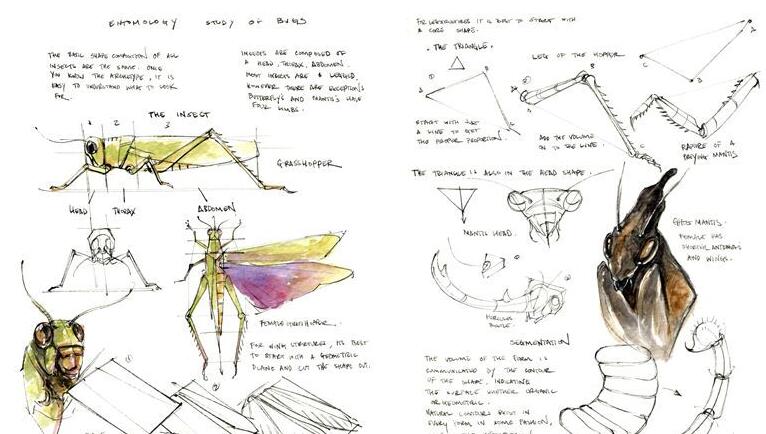 ENTOMOLOGY STUDY OF BUGS
THE BASIC SHAPE COMPOSITION OF ALL
INSECTS ARE THE SAME. ONCE
YOU KNOW THE ARCHETYPE, IT IS
EASY TO UNDERSTAND WHAT TO LOOK
FOR.
INSECTS ARE COMPOSED OF
A HEAD, THORAX, ABDOMEN.
MOST INSECTS ARE 6 LEGGED,
HOWEVER THERE ARE EXCEPTIONS
BUTTERFLY'S AND MANTIS'S HAVE
FOUR LIMBS.
THE INSECT
1 2 3
GRASSHOPPER
HEAD THORAX ABDOMEN
FEMALE
FOR WING STRUCTURES, ITS BEST
TO START WITH A GEOMETRIC
PLANE AND CUT THE SHAPE OUT.
FOR LEG STRUCTURES IT IS BEST TO START WITH
A CORE SHAPE.
THE TRIANGLE.
LEG OF THE HOPPER
A
B
C
START WITH JUST
A LINE TO GET
THE PROPER PROPORTION.
ADD THE VOLUME
ON TO THE LINE.
OF A
PRAYING MANTIS
THE TRIANGLE IS ALSO IN THE HEAD SHAPE.
MANTIS HEAD.
GHOST MANTIS.
FEMALE HAS
SHORTER ANTENNAS
AND WINGS.
HERCULES
BEETLE
SEGMENTATION
THE VOLUME OF THE FORM IS
COMMUNICATED BY THE CONTOUR
OF THE SHAPE, INDICATING
THE SURFACE WHETHER ORGANIC
OR GEOMETRIC.
NATURAL CONTOURS EXIST IN
EVERY FORM IN SOME FASHION,